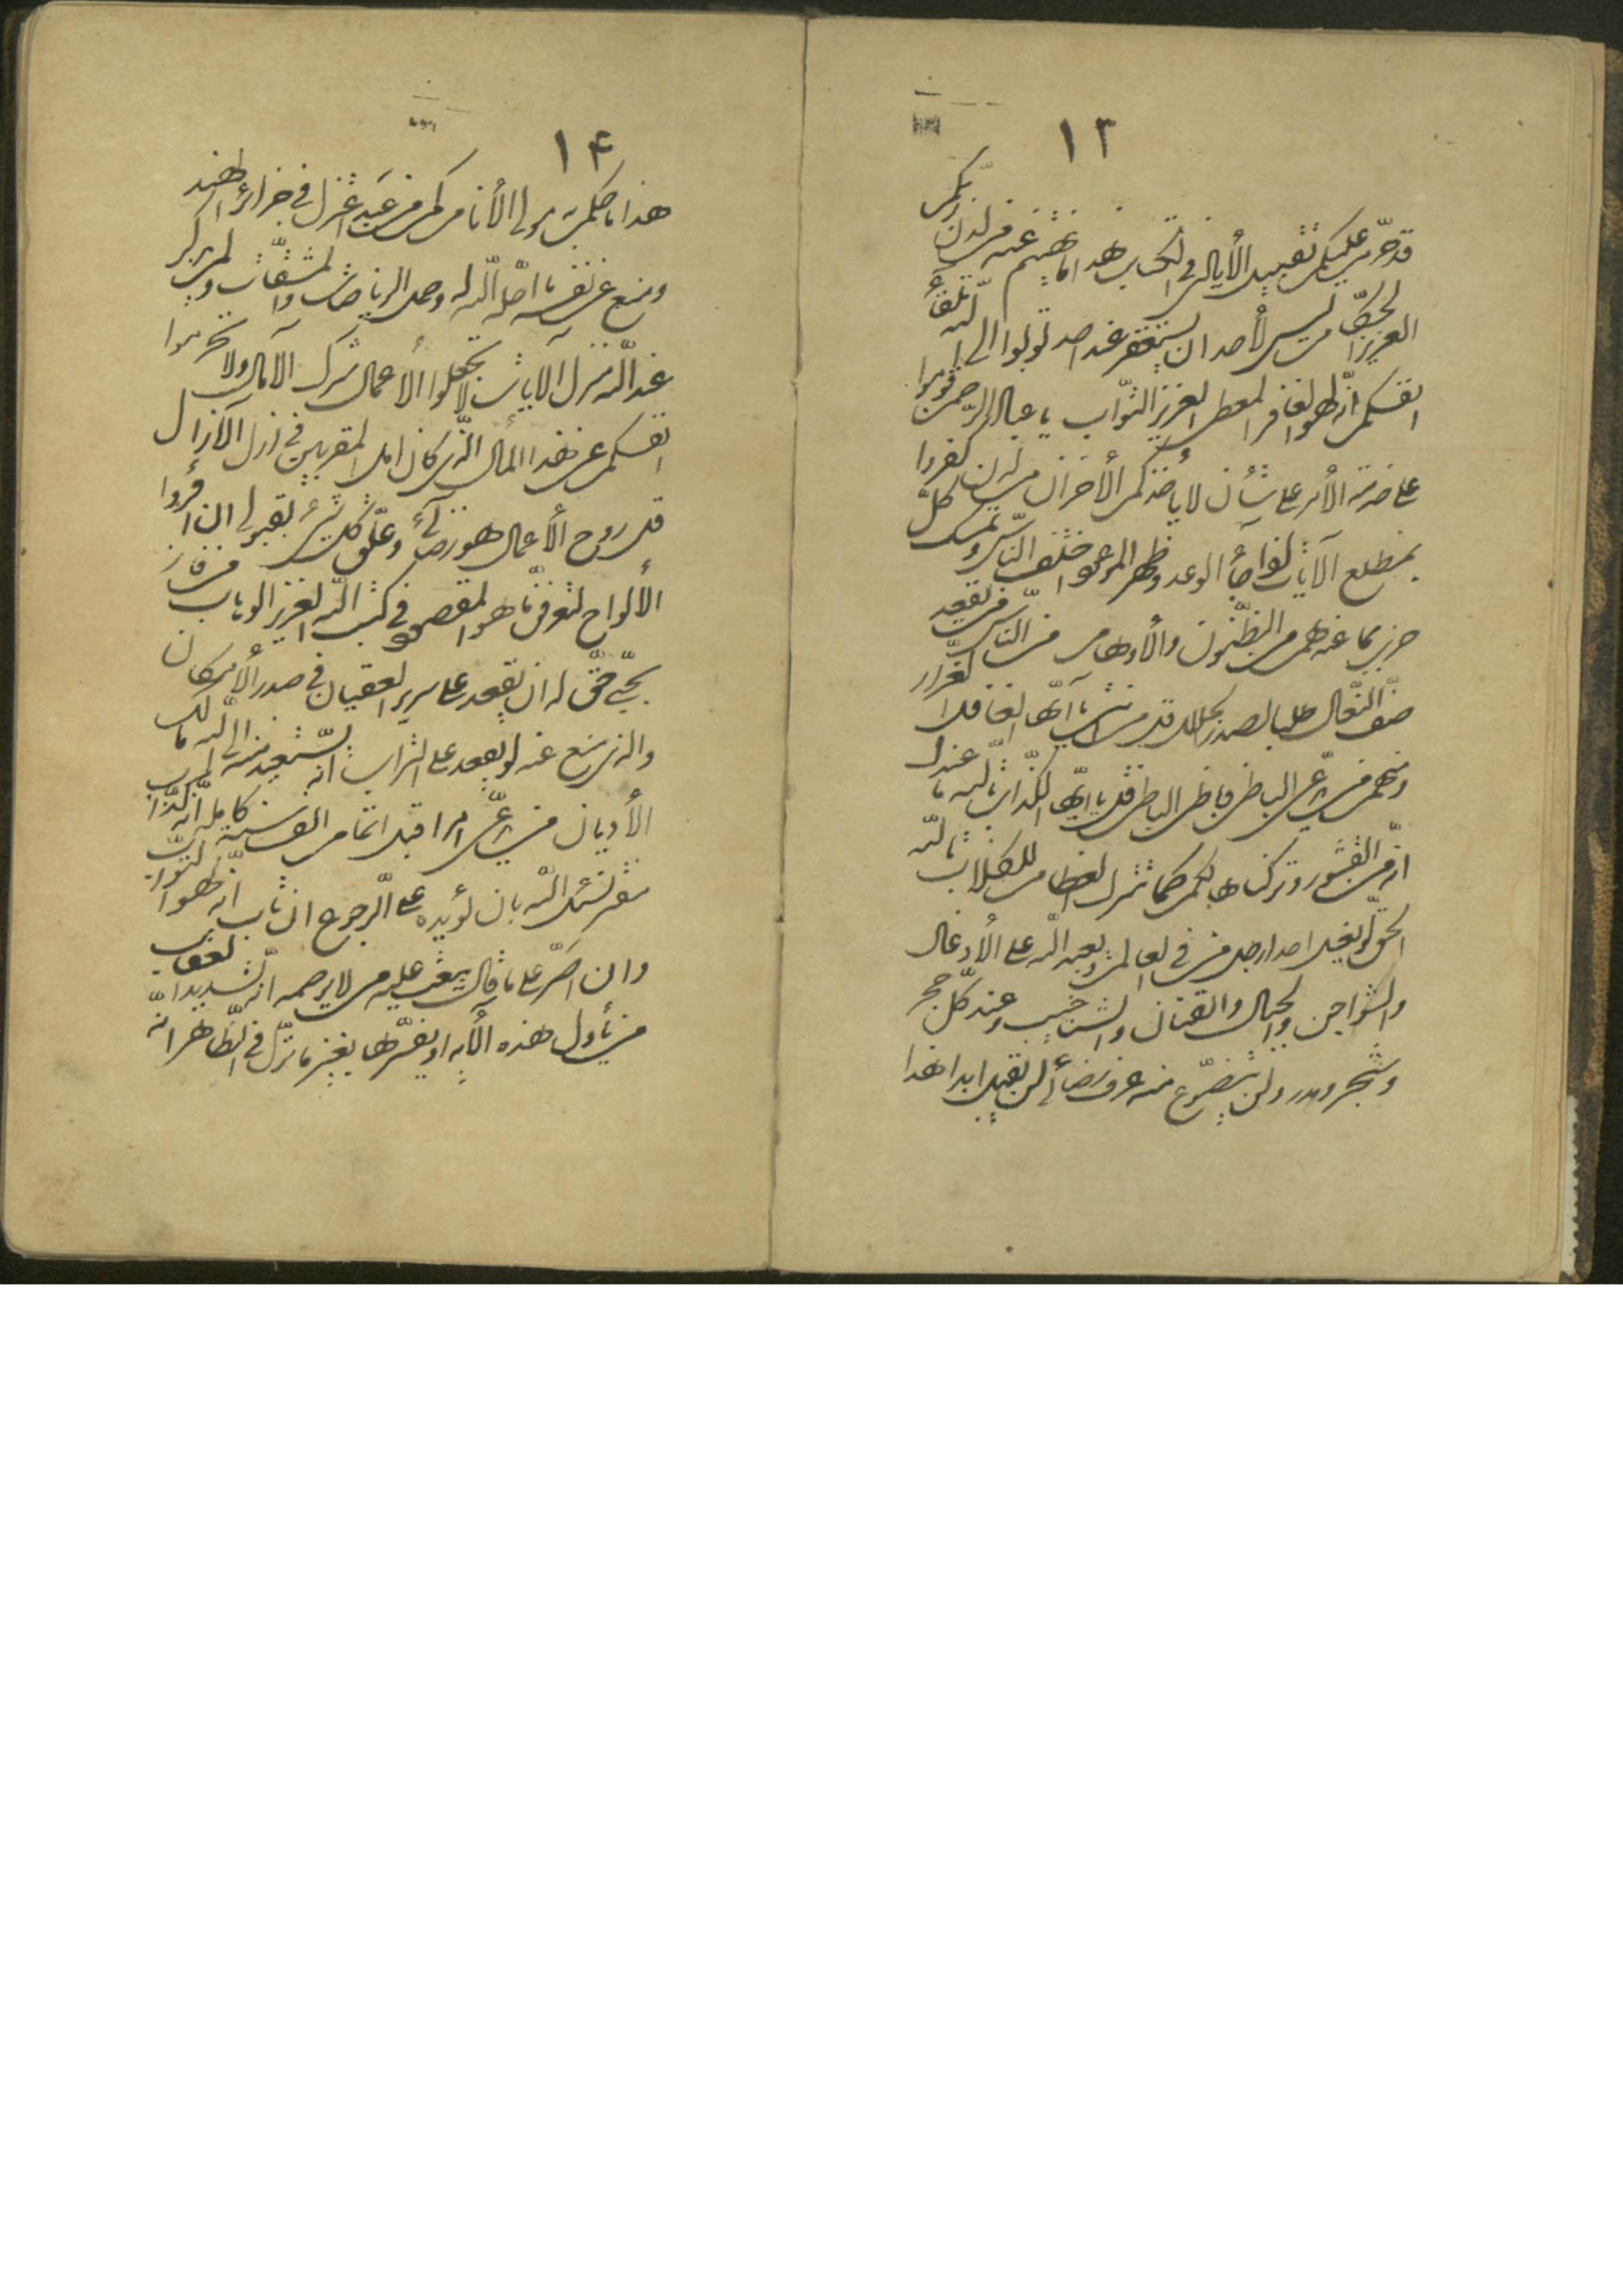 ١٣
قد حرّم عليكم تقبيل الأيادى فى الكتاب هذا ما نهيتم عنه من لدن ربّكم
العزيز الحكّام ليس لأحد ان يستغفر عند احد توبوا الى الله تلقآء
انفسكم انّه لهو الغافر المعطى العزيز التّواب يا عباد الرّحمن قوموا
على خدمة الأمر على شأن لا يأخذكم الأحزان من الّذين كفروا
بمطلع الآيات لمّا جآء الوعد وظهر الموعود اختلف النّاس وتمسّك كلّ
حزب بما عنده من الظّنون والأوهام من النّاس من يقعد
صفّ النّعال طلباً لصدر الجلال قل من انت يا ايّها الغافل الغرّار
ومنهم من يدّعى الباطن وباطن الباطن قل يا ايّها الكذّاب تالله ما عندك
انّه من القشور تركناها لكم كما تترك العظام للكلاب تالله
الحقّ لو يغسل احد ارجل من فى العالم ويعبد الله على الأدغال
والشّواجن والجبال والقنان والشناخيب وعند كلّ حجر
وشجر ومدر ولن يتضوّع منه عرف رضآئى لن يقبل ابدا هذا
١٤
هذا ما حكم به مولى الأنام كم من عبد اعتزل فى جزائر الهند
ومنع عن نفسه ما احلّه الله له وحمل الرياضات والمشقّات ولم يذكر
عند الله منزل الآيات لا تجعلوا الأعمال شرك الآمال ولا تحرموا
انفسكم عن هذا المآل الّذى كان امل المقرّبين فى ازل الآزال
قل روح الأعمال هو رضآئى وعلّق كلّ شئ بقبولى ان اقرؤا
الألواح لتعرفوا ما هو المقصود فى كتب الله العزيز الوهاب من فاز
بحبّى حقّ له ان يقعد على سرير العقيان فى صدر الأمكان
والذى منع عنه لو يقعد على التراب انه يستعيذ منه الى الله مالك
الأديان من يدّعى امرا قبل اتمام الف سنة كاملة انه كذّاب
مفتر نسئل الله بان يؤيده على الرجوع ان تاب انّه لهو التّوّاب
وان اصرّ على ما قال يبعث عليه من لا يرحمه انّه شديد العقاب
من يأول هذه الآية او يفسّرها بغير ما نزّل فى الظّاهر انّه